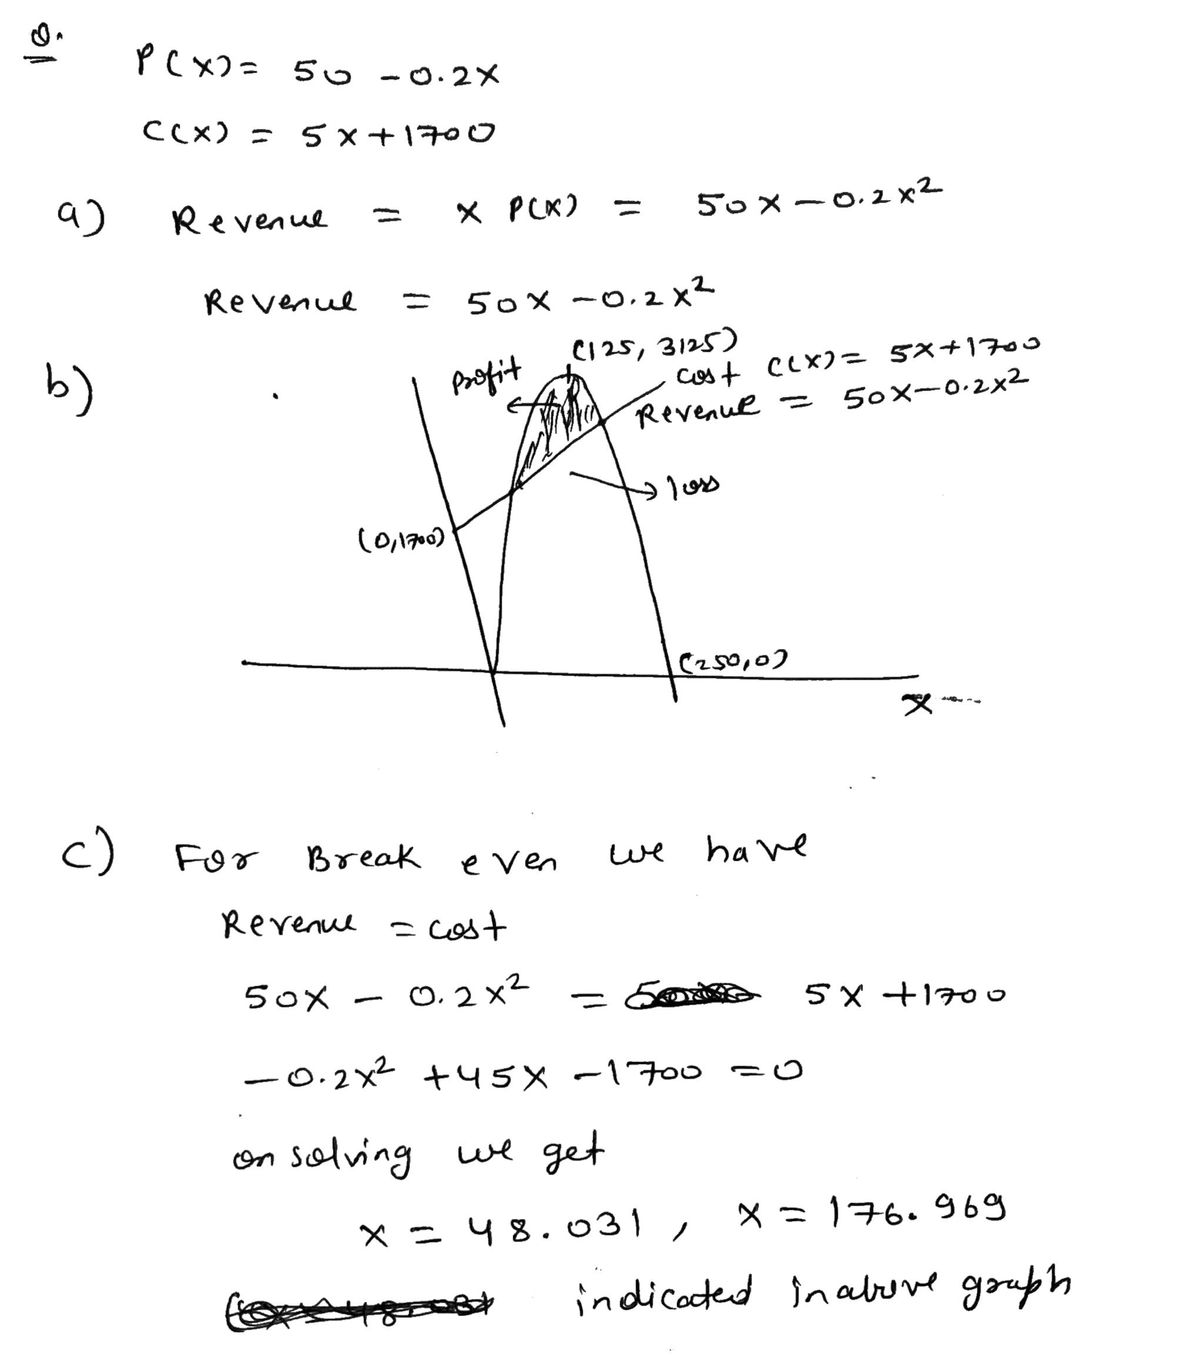 Q.
P(x) = 50 - 0.2x
C(x) = 5x + 1700
a) Revenue = x P(x) = 50x - 0.2x²
Revenue = 50x - 0.2x²
b)
profit
(125, 3125)
cost C(x) = 5x + 1700
Revenue = 50x - 0.2x²
loss
(0,1700)
(250,0)
x
c) For Break even we have
Revenue = cost
50x - 0.2x² = 5x + 1700
-0.2x² + 45x - 1700 = 0
on solving we get
x = 48.031, x = 176.969
indicated in above graph